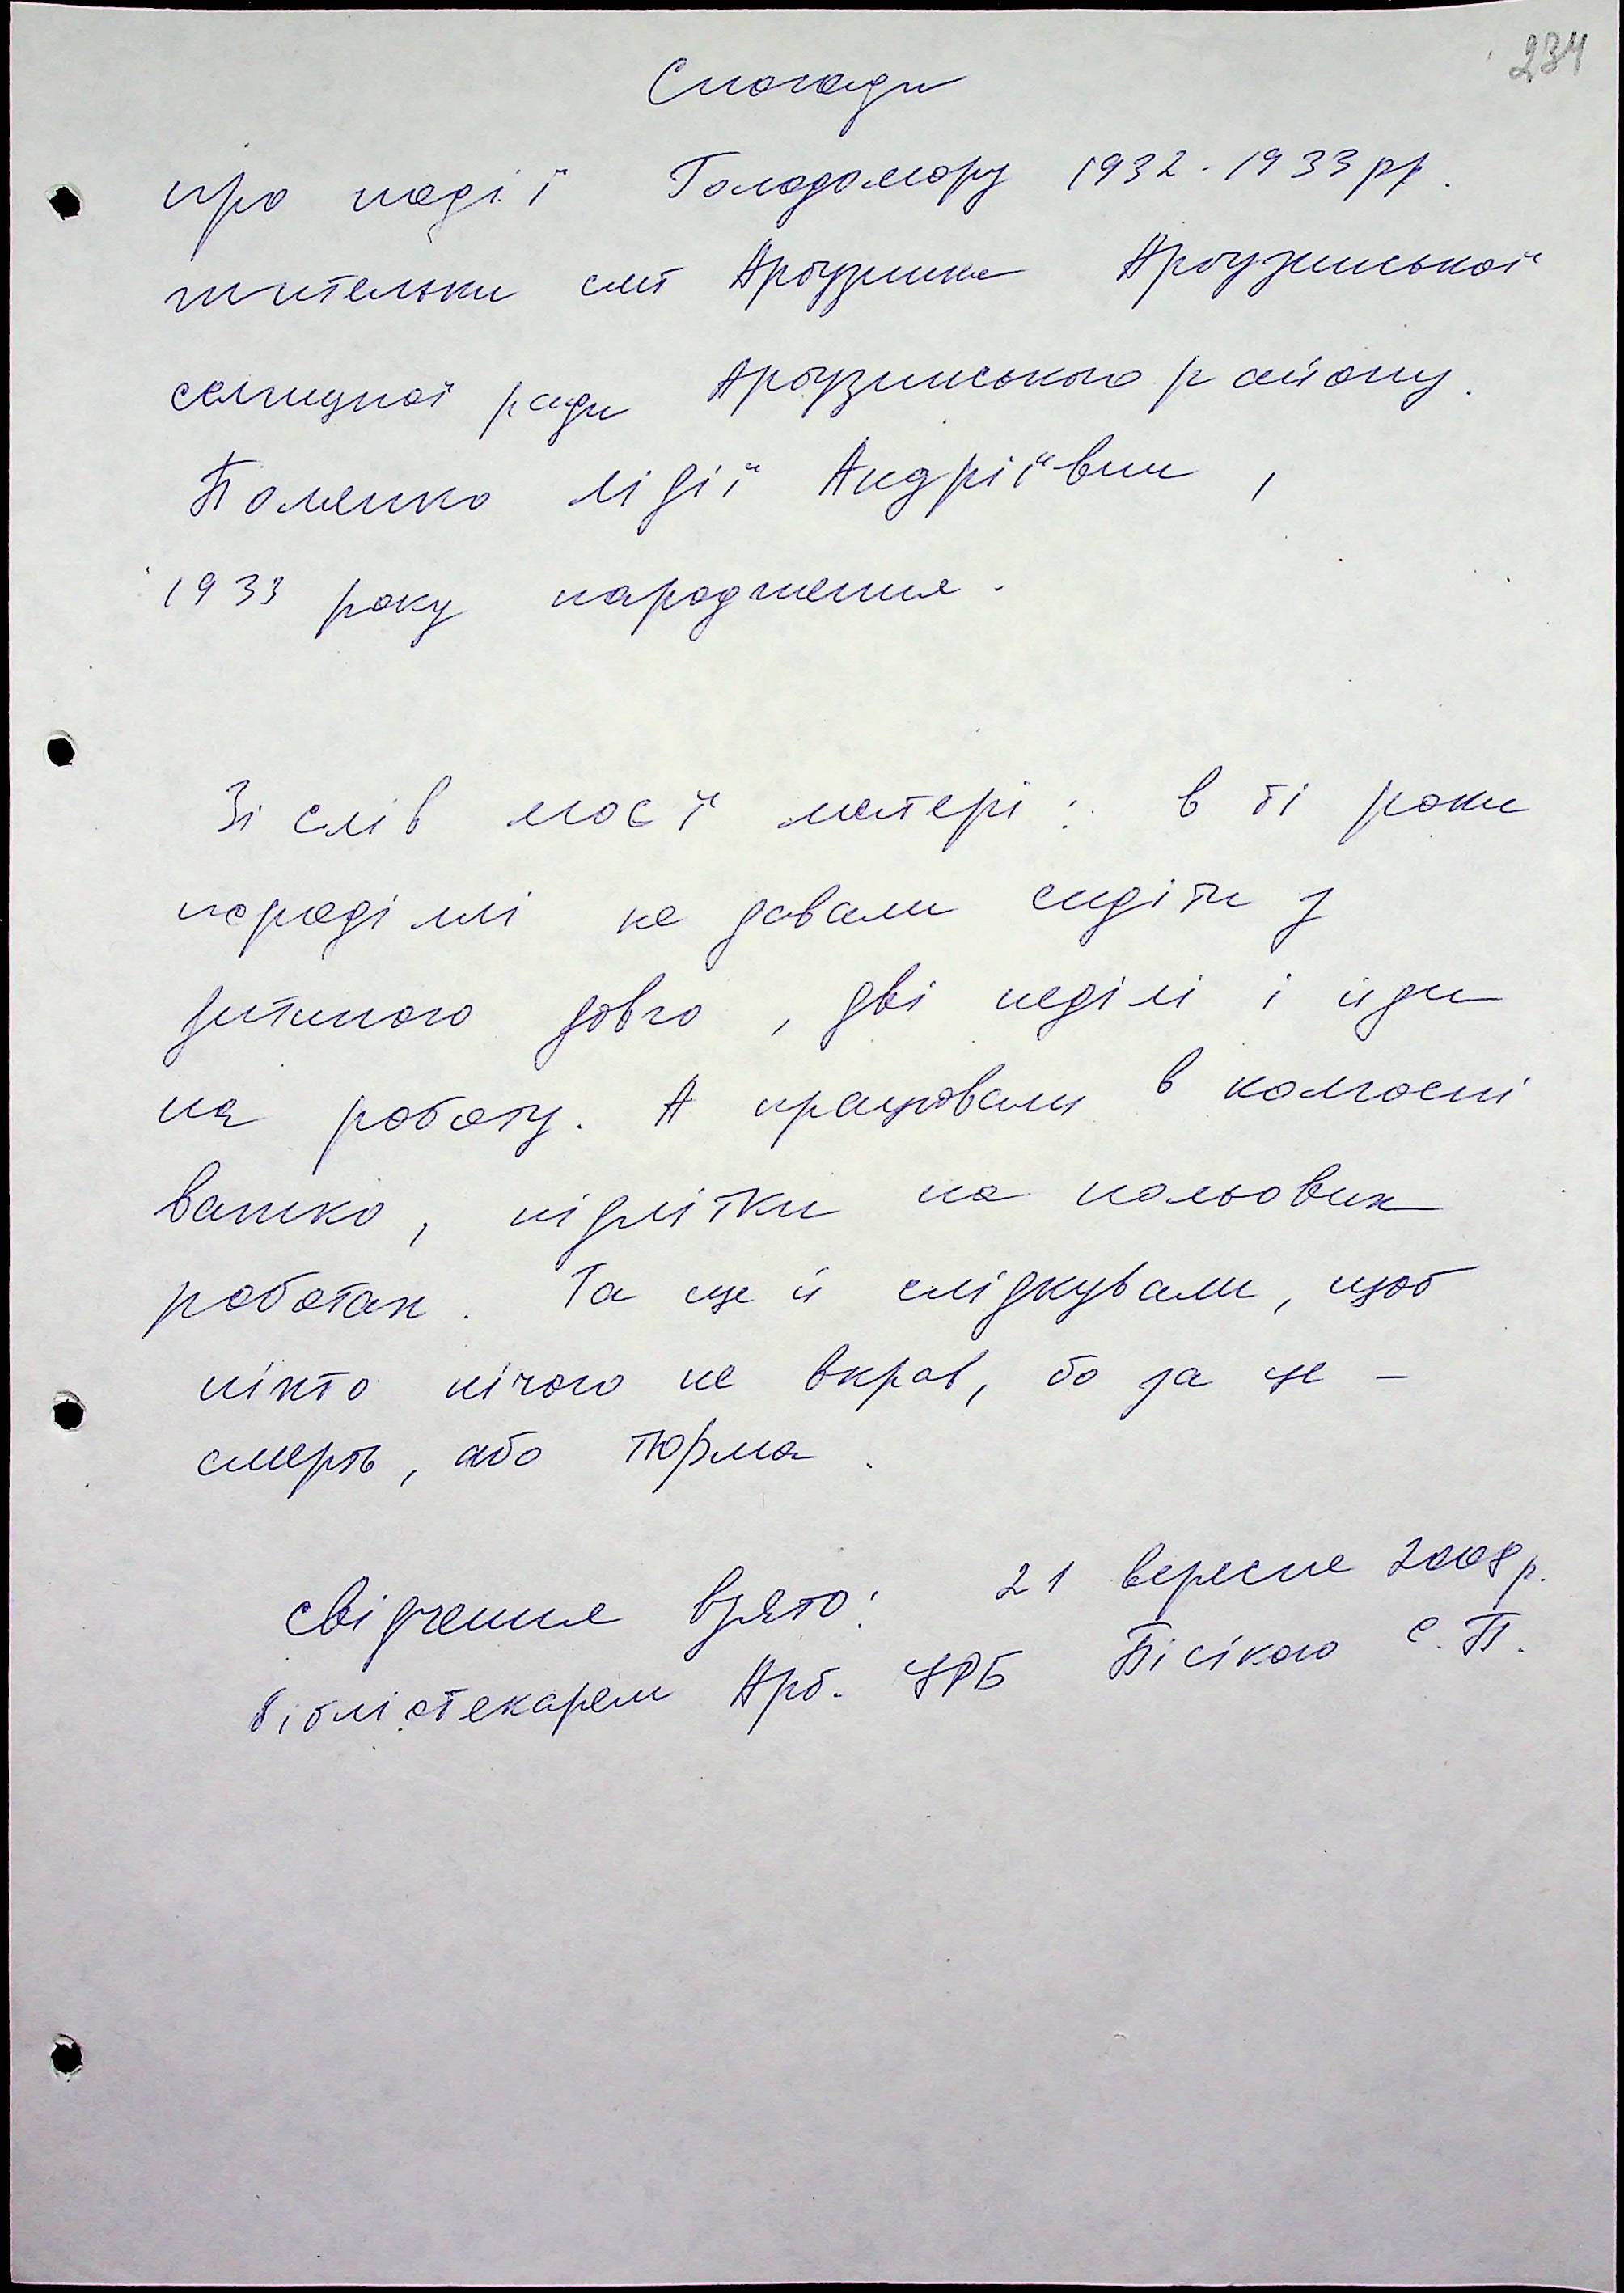 234
Спогади
про події Голодомору 1932-1933 рр.
жительки смт Арбузинка Арбузинської
селищної ради Арбузинського району.
Лідії Андріївни,
1933 року народження.
Зі слів моєї матері: в ті роки
породіллі не давали сидіти з
дитиною довго, дві неділі і йди
на роботу. А працювали в колгоспі
важко, підлітки на польових
роботах. Та ще й слідкували, щоб
ніхто нічого не вкрав, бо за це –
смерть, або тюрма.
Свідчення взято: 21 вересня 2008 р.
бібліотекарем Арб. ЦРБ С.П.